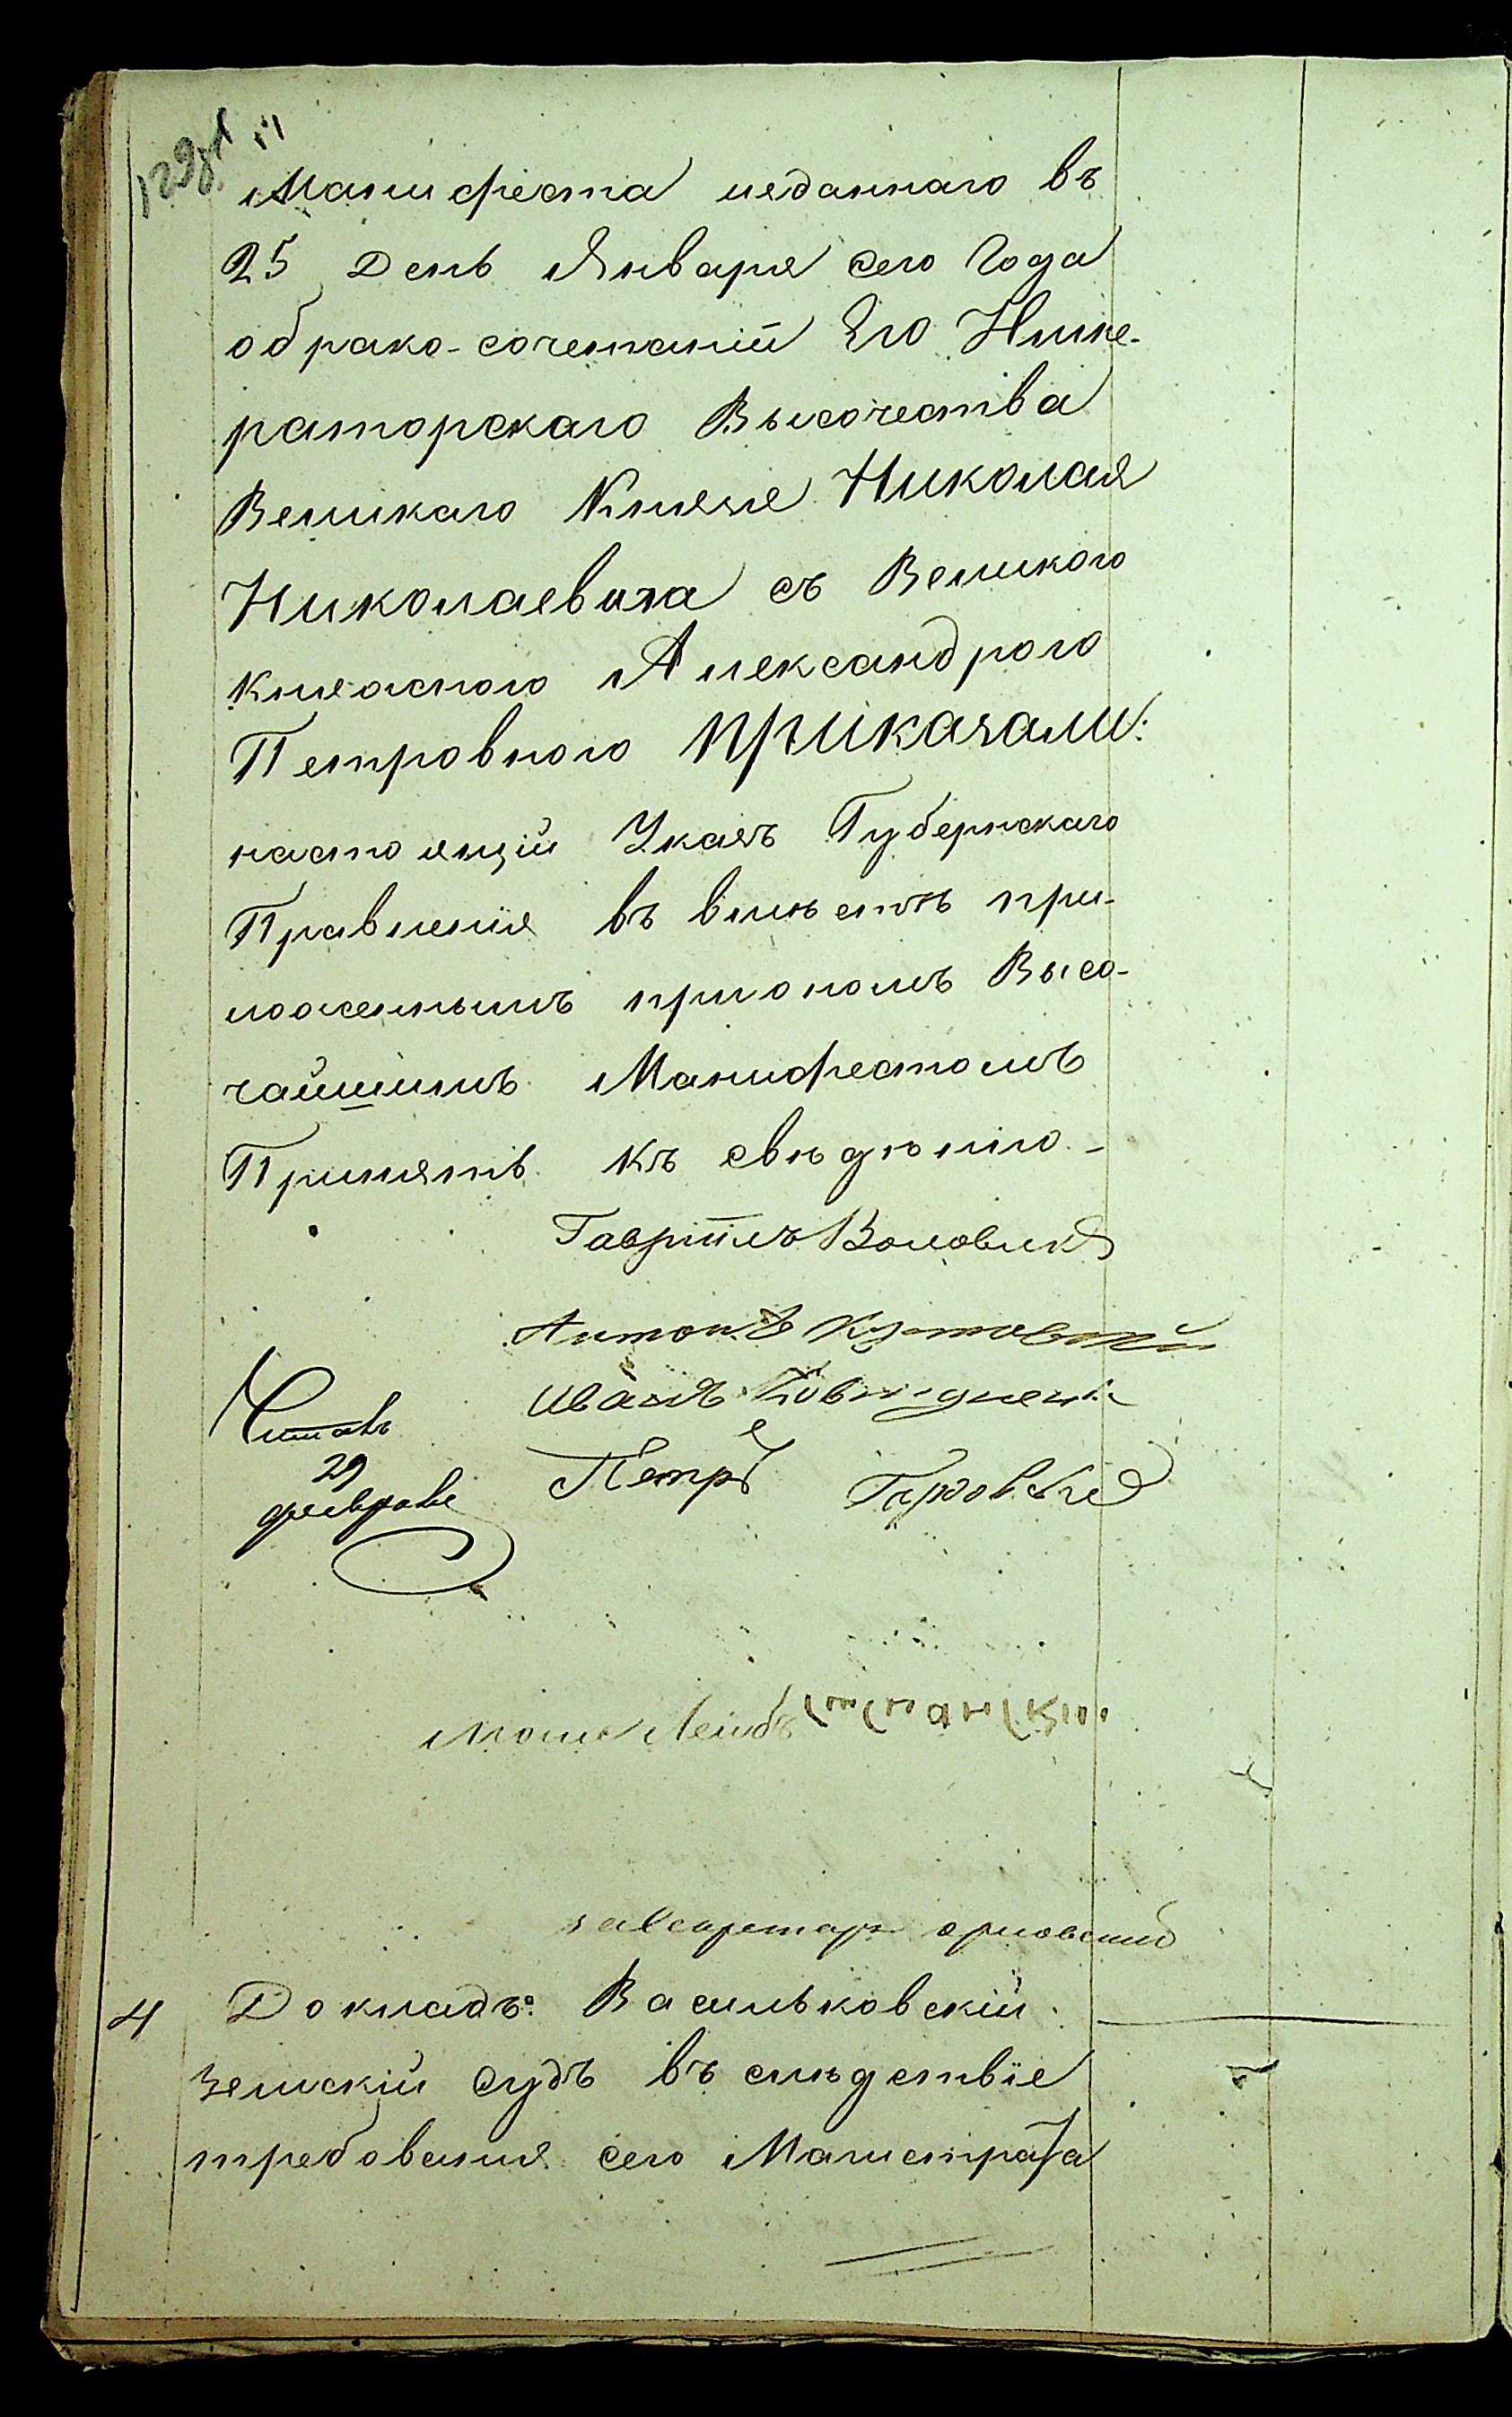 Манифеста изданнаго въ
25 День Января сего Года
обрако-сочетаніи Его Импе-
раторскаго Высочества
Великаго Князя Николая
Николаевича съ Великою
княжною Александрою
Петровною приказали:
настоящій Указъ Губернскаго
Правленія въ вмѣстѣ при-
ложеннымъ приономъ Высо-
чайшимъ Манифестомъ
Принять къ свѣдѣнію
Гавріилъ Воловик
Антонъ
Иванъ
Читалъ
29
февраля
Петръ
Мошко Лейбъ
орловский
4 Докладъ: Васильковскій
земскій судъ въ слѣдствіе
требованія сего Магистрата